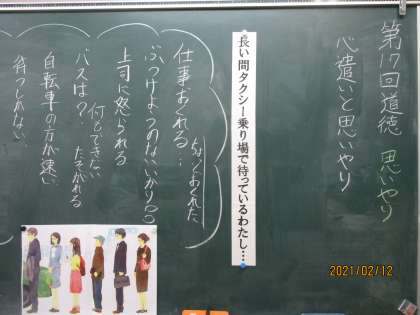 第17回道徳 思いやり
心遣いと思いやり
長い間タクシー乗り場で待っているわたし…
仕事おくれる…
ぶつけようのないいかり
上司に怒られる
バスは?
自転車の方が速い
待つしかない
2021/02/12